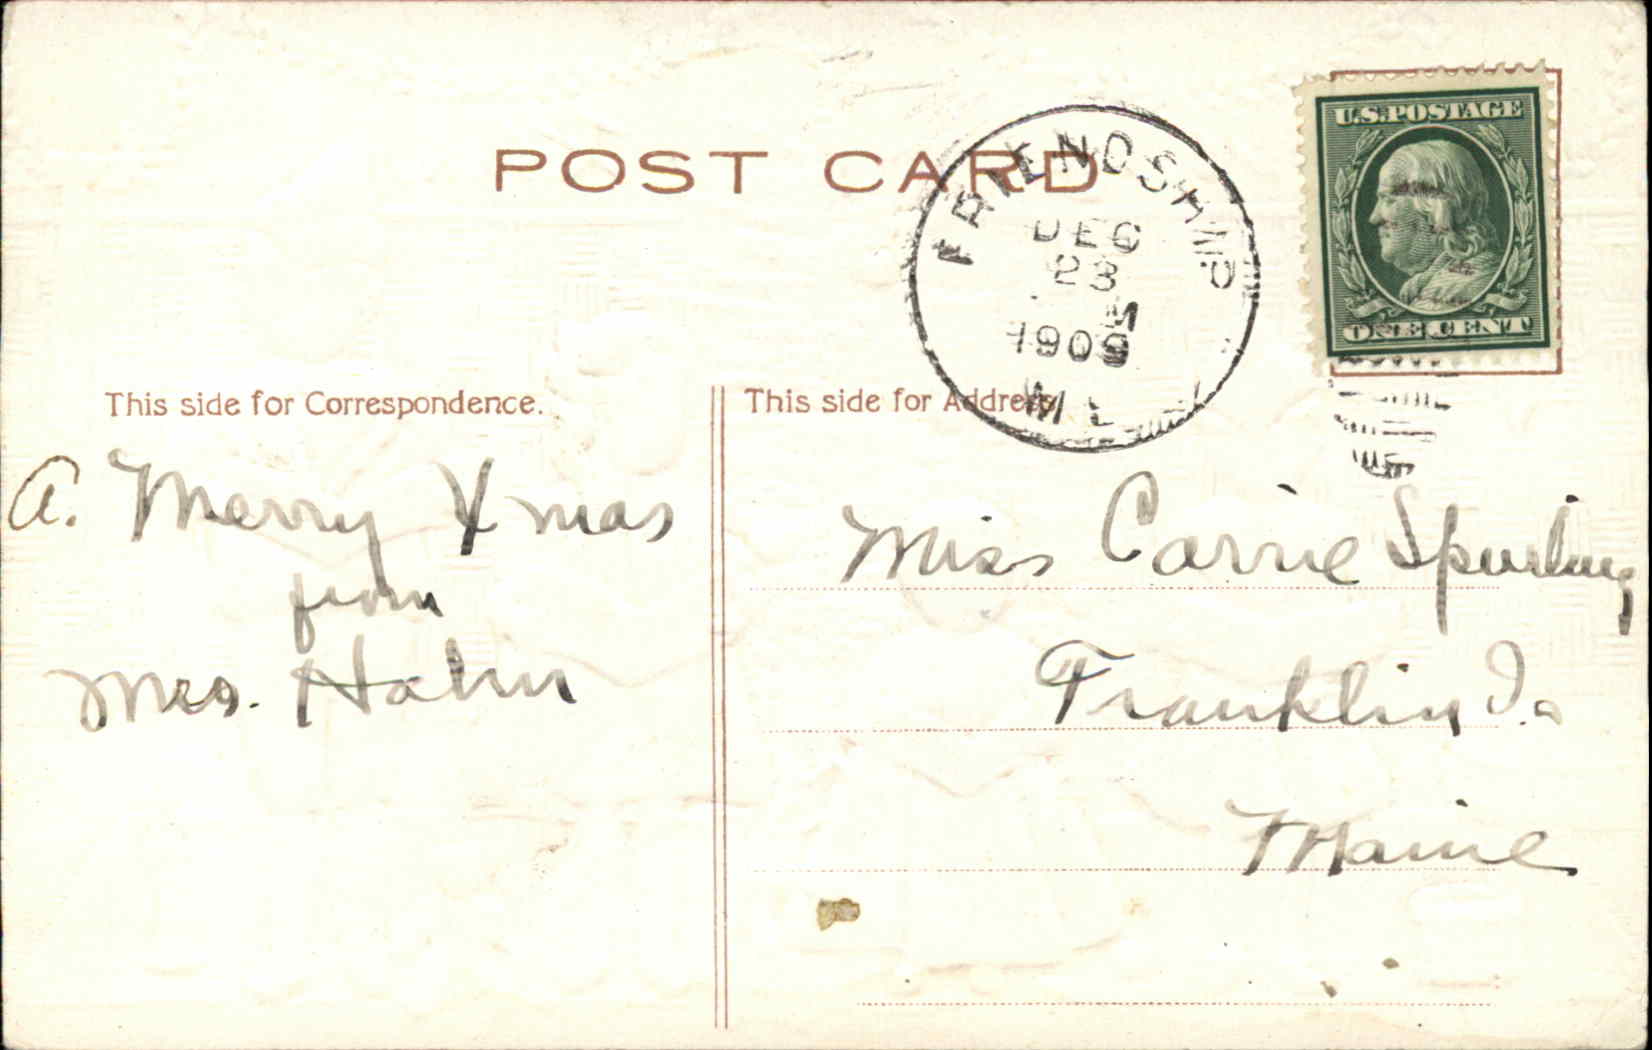 POST CARD
FRIENDSHIP
DEC
23
M
1909
ME
U.S. POSTAGE
ONE CENT
This side for Correspondence.
This side for Address.
A. Merry Xmas
from
Mrs. Hahn
Miss Carrie Spurling
Franklin
Maine